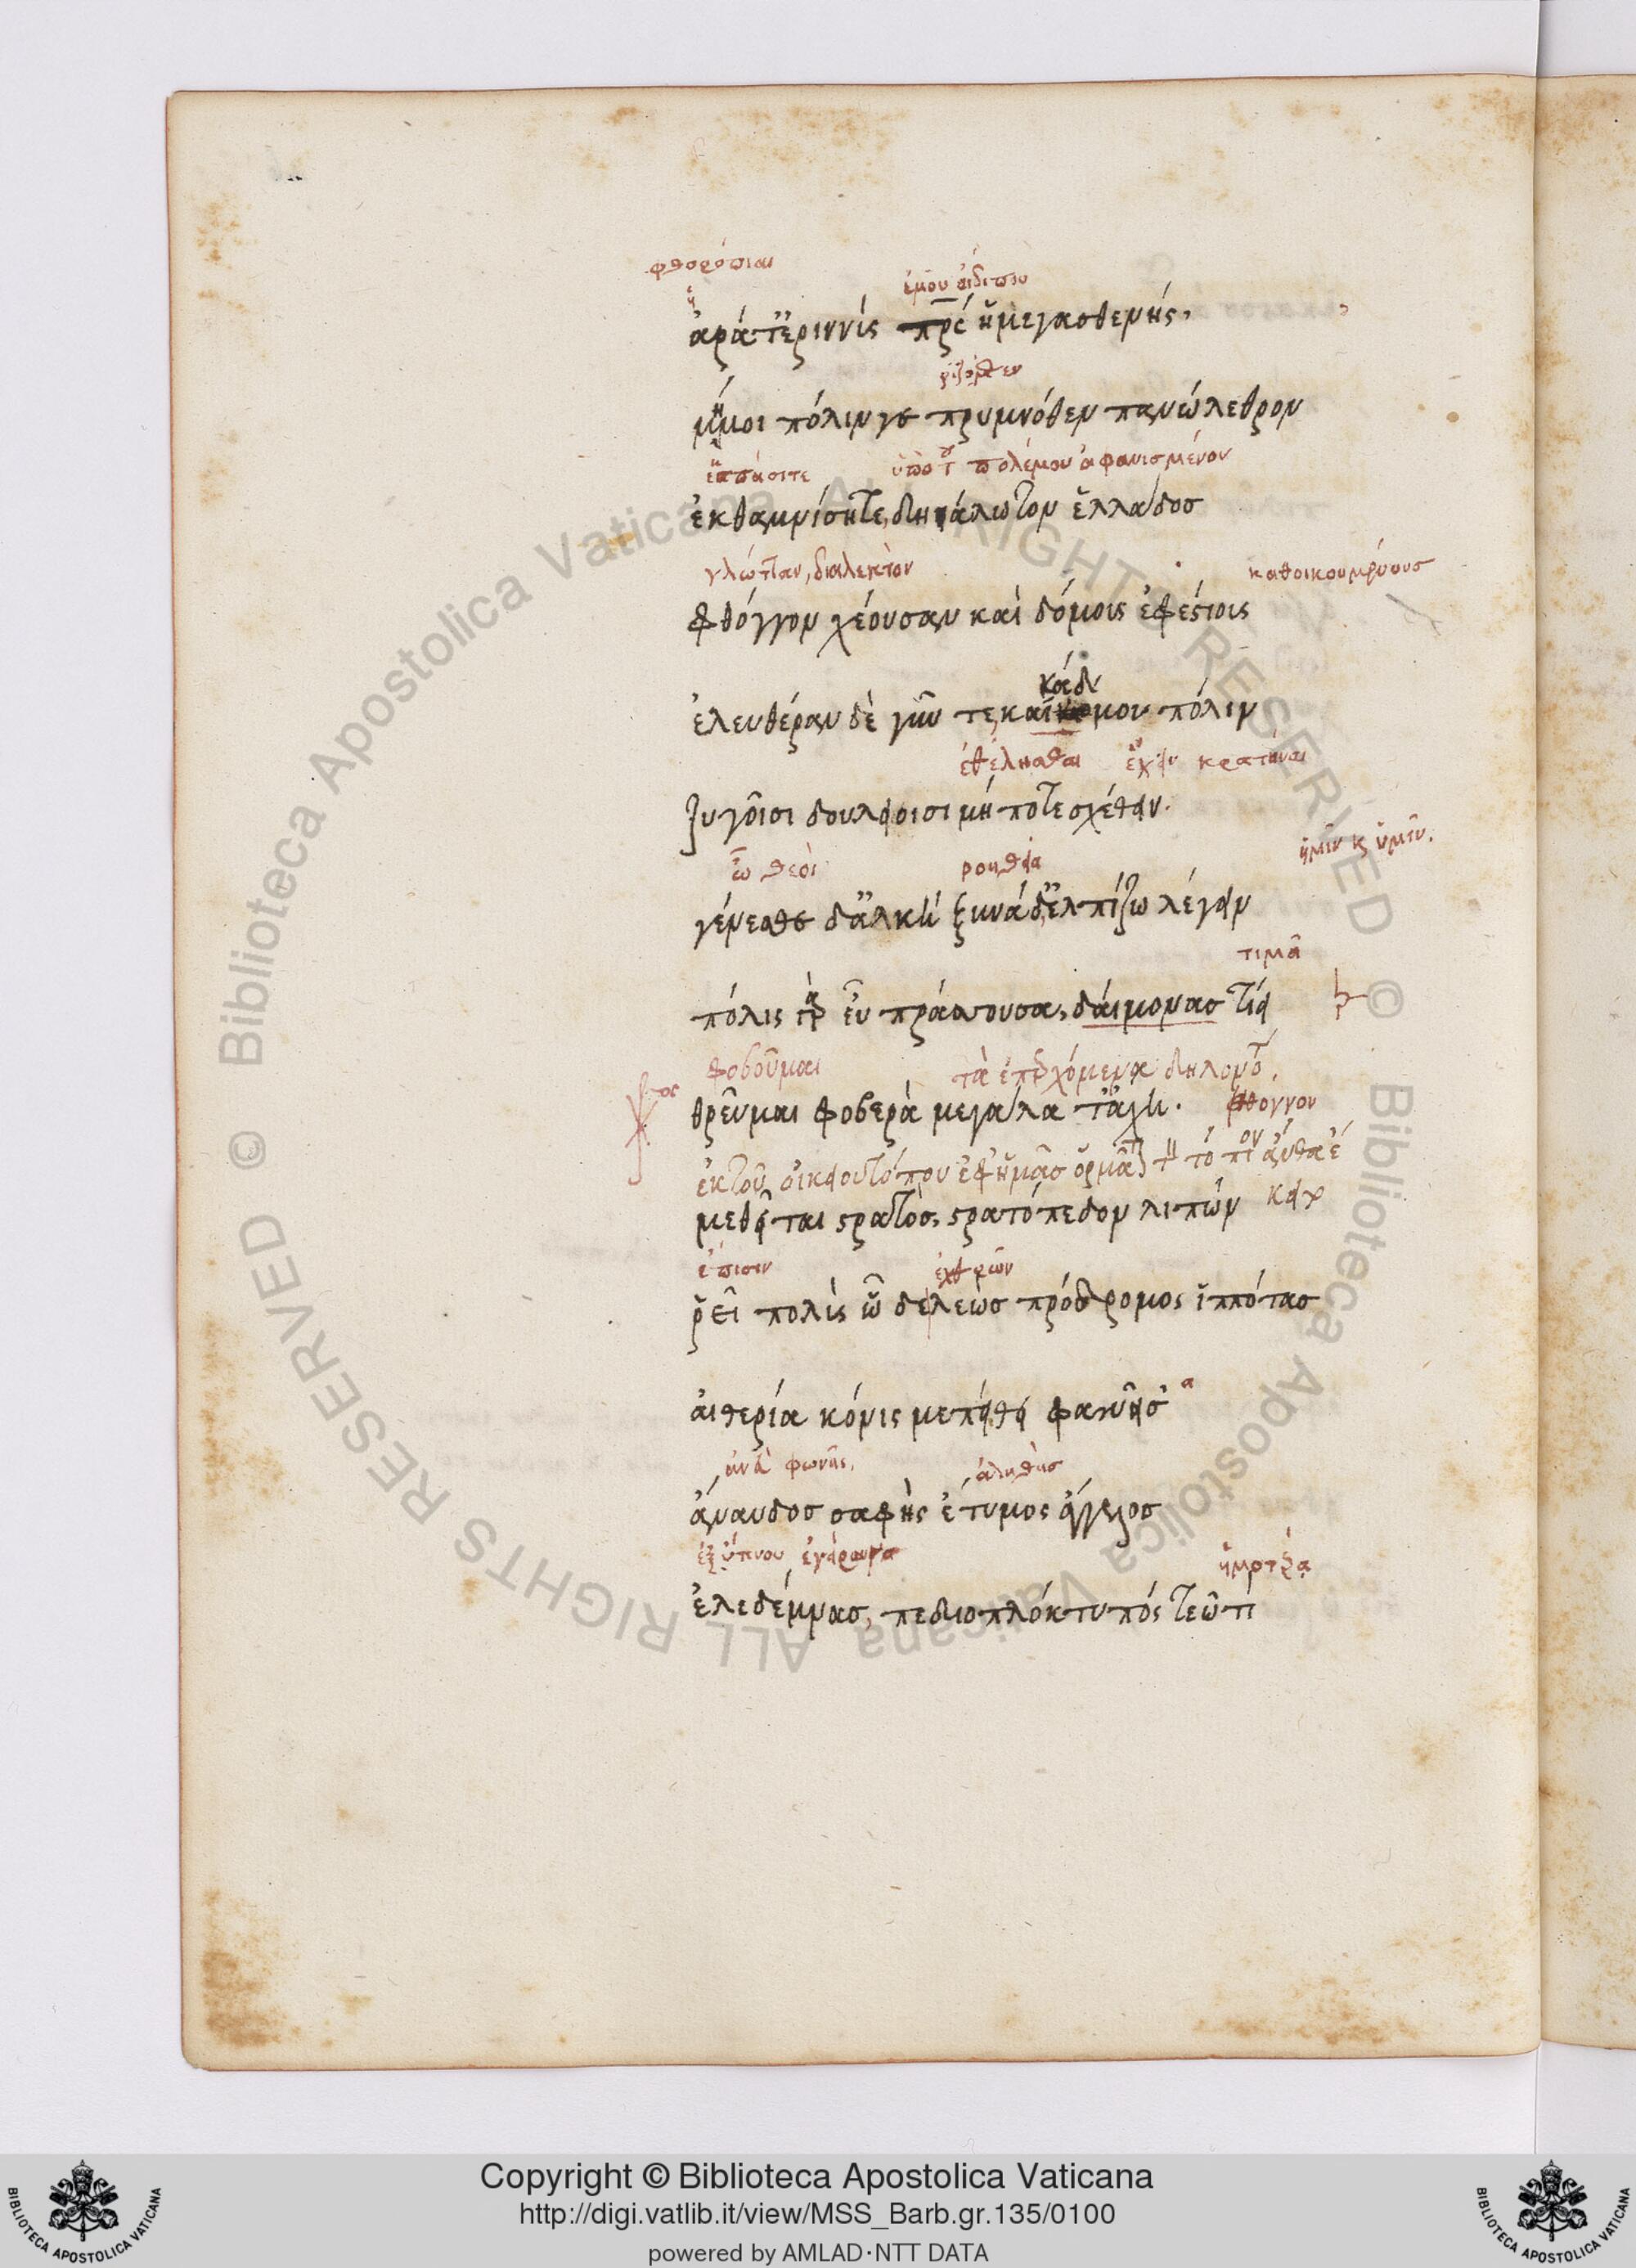 φθοροποιαὶ
ἐμοῦ οἰδίπου
ἀρά τ' ἐριννὺς πρς ἡ μεγασθενής,
ῥιζόθεν
μή μοι πόλιν γε πρυμνόθεν πανώλεθρον
ὑπὸ τ πολέμου ἀφανισμένον
ἐκθαμνίσητε, δηάλωτον ἑλλάδος
γλῶτταν, διάλεκτον καθοικουμένους
φθόγγον χέουσαν καὶ δόμοις ἐφεστίοις
κάδ
ἐλευθέραν δὲ γῆν τε καὶ μου πόλιν
κρατῆναι
ζυγοῖσι δουλείοισι μή ποτε σχέθειν.
ὦ θεοὶ βοήθεια ἡμῖν κ ὑμῖν.
γένεσθε δ' ἀλκή ξυνὰ δ' ἐλπίζω λέγειν
τιμᾶ
πόλις γὰρ εὖ πράττουσα, δαίμονας τίει
φοβοῦμαι τὰ ἐπερχόμενα δηλονότι.
θρεῦμαι φοβερὰ μεγάλα τ' ἄχη. φθόγγον
ἐκ τοῦ οἰκείου τόπου ἐφ' ἡμᾶς ὁρμᾶ
μεθεῖται στρατός, στρατόπεδον λιπών
ἐχθρῶν
ῥεῖ πολὺς ὧδε λεὼς πρόδρομος ἱππότας
αἰθερία κόνις με πείθει φανεῖσ' α
ἄνευ φωνῆς, ἀληθὴς
ἄναυδος σαφὴς ἔτυμος ἄγγελος
ἐξ ὕπνου ἐγείρουσα ἡμετέρα
ἑλεδέμνας, πεδιοπλόκτυπός τε ὠτὶ
Copyright © Biblioteca Apostolica Vaticana
http://digi.vatlib.it/view/MSS_Barb.gr.135/0100
powered by AMLAD·NTT DATA
BIBLIOTECA APOSTOLICA VATICANA
BIBLIOTECA APOSTOLICA VATICANA
© Biblioteca Apostolica Vaticana ALL RIGHTS RESERVED © Biblioteca Apostolica Vaticana ALL RIGHTS RESERVED